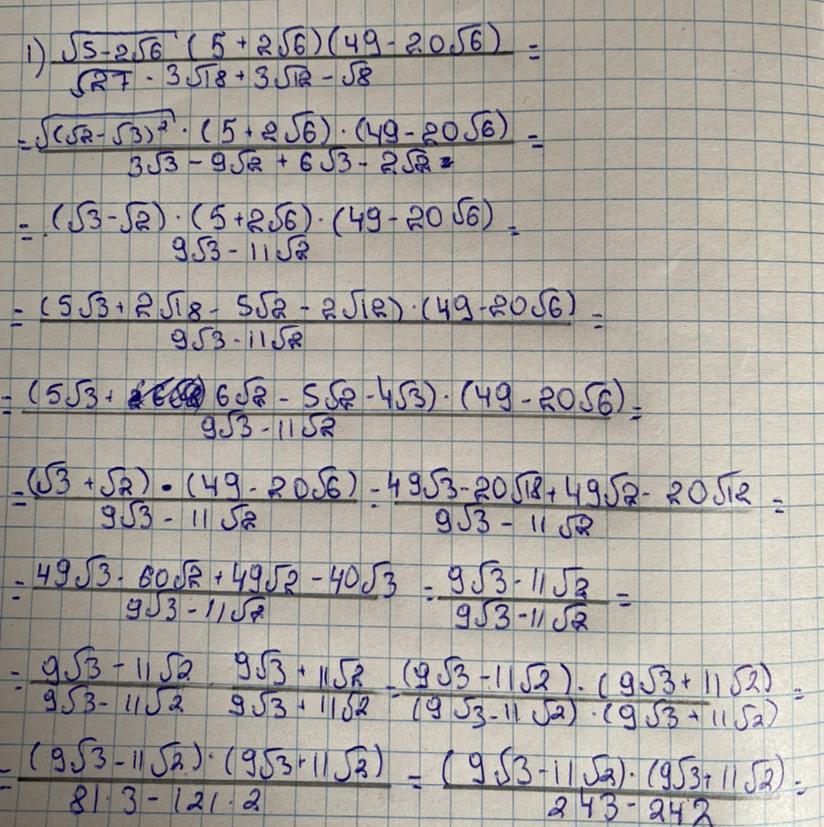 1) √(5-2√6) (5+2√6)(49-20√6) / √27 - 3√18 + 3√12 - √8 =
= √((√2-√3)²) · (5+2√6) · (49-20√6) / 3√3 - 9√2 + 6√3 - 2√2 =
= (√3-√2) · (5+2√6) · (49-20√6) / 9√3 - 11√2 =
= (5√3 + 2√18 - 5√2 - 2√12) · (49-20√6) / 9√3 - 11√2 =
= (5√3 + 6√2 - 5√2 - 4√3) · (49-20√6) / 9√3 - 11√2 =
= (√3+√2) · (49-20√6) / 9√3 - 11√2 = 49√3 - 20√18 + 49√2 - 20√12 / 9√3 - 11√2 =
= 49√3 - 60√2 + 49√2 - 40√3 / 9√3 - 11√2 = 9√3 - 11√2 / 9√3 - 11√2 =
= 9√3 - 11√2 / 9√3 - 11√2 · 9√3 + 11√2 / 9√3 + 11√2 = (9√3 - 11√2) · (9√3 + 11√2) / (9√3 - 11√2) · (9√3 + 11√2) =
= (9√3 - 11√2) · (9√3 + 11√2) / 81·3 - 121·2 = (9√3 - 11√2) · (9√3 + 11√2) / 243 - 242 =